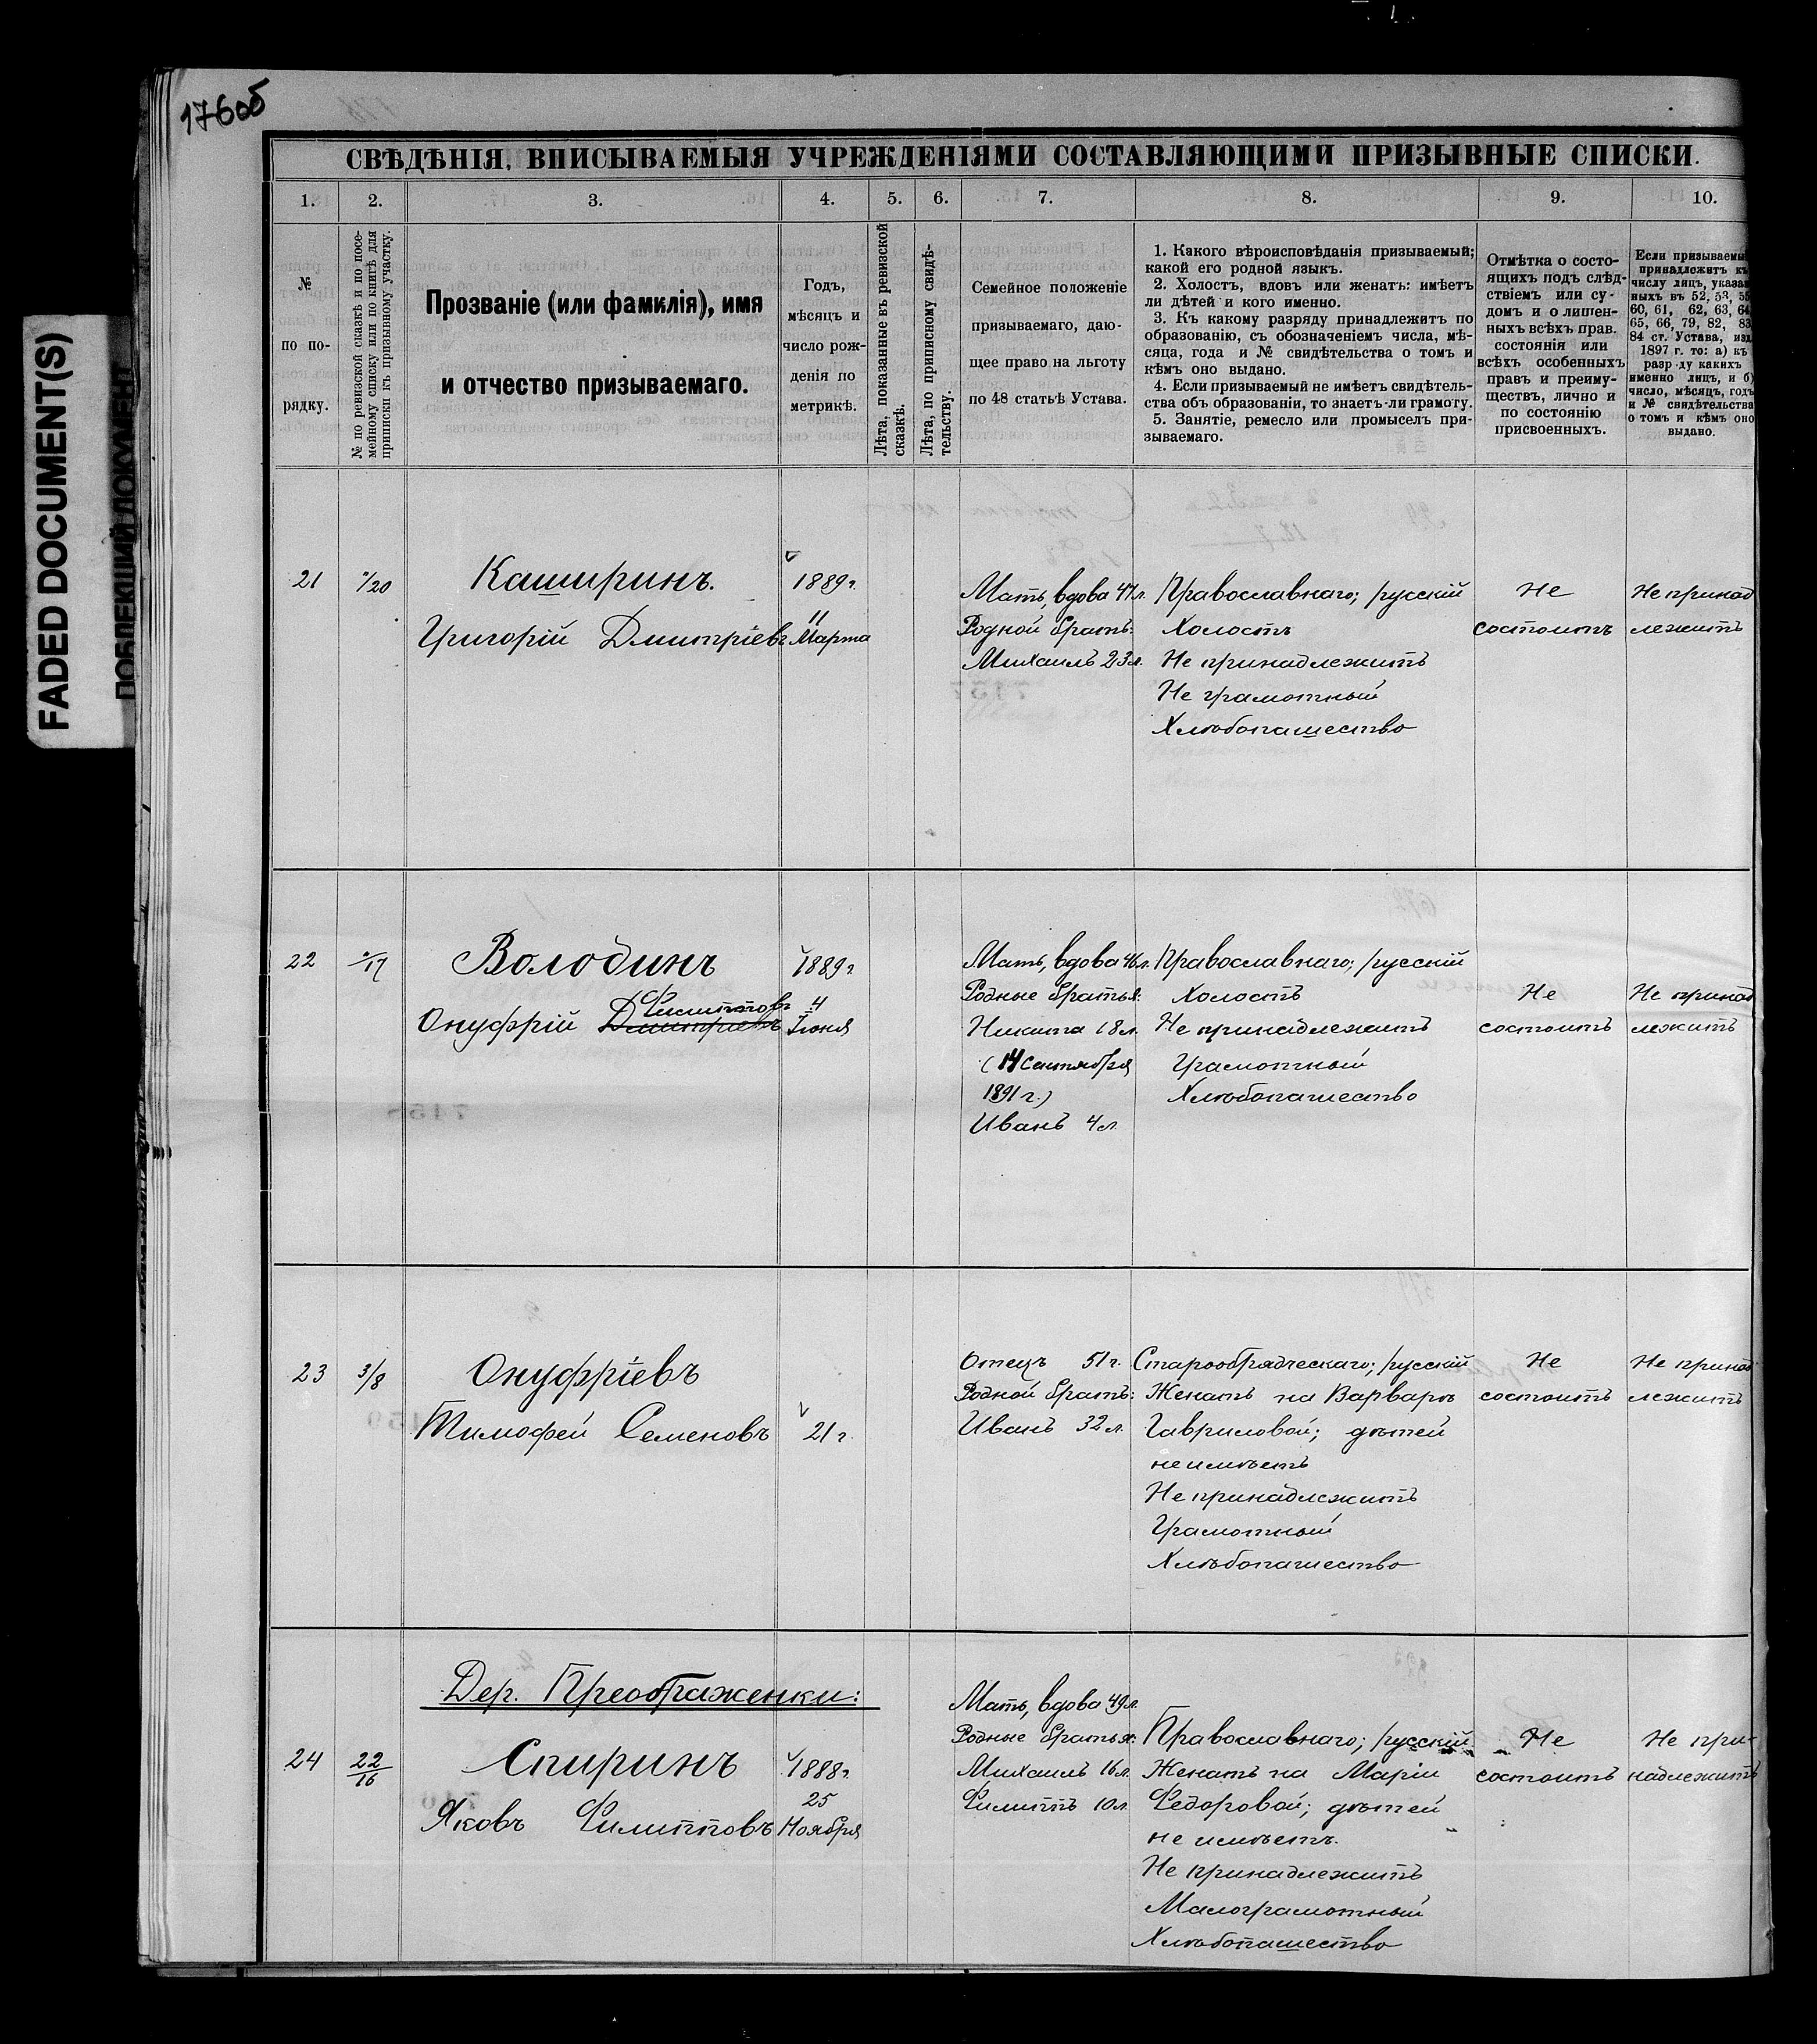 176об
FADED DOCUMENT(S)
ПОБЛЕКШИЙ ДОКУМЕНТ
СВѢДѢНІЯ, ВПИСЫВАЕМЫЯ УЧРЕЖДЕНІЯМИ СОСТАВЛЯЮЩИМИ ПРИЗЫВНЫЕ СПИСКИ.
1. 2. 3. 4. 5. 6. 7. 8. 9. 10.
№
по по-
рядку.
№ по ревизской сказкѣ и по посе-
мейному списку или по книгѣ для
приписки къ призывному участку.
Прозваніе (или фамилія), имя
и отчество призываемаго.
Годъ,
мѣсяцъ и
число рож-
денія по
метрикѣ.
Лѣта, показанные въ ревизской
сказкѣ.
Лѣта, по приписному свидѣ-
тельству.
Семейное положеніе
призываемаго, даю-
щее право на льготу
по 48 статьѣ Устава.
1. Какого вѣроисповѣданія призываемый;
какой его родной языкъ.
2. Холостъ, вдовъ или женатъ: имѣетъ
ли дѣтей и кого именно.
3. Къ какому разряду принадлежитъ по
образованію, съ обозначеніемъ числа, мѣ-
сяца, года и № свидѣтельства о томъ и
кѣмъ оно выдано.
4. Если призываемый не имѣетъ свидѣтель-
ства объ образованіи, то знаетъ-ли грамоту.
5. Занятіе, ремесло или промыселъ при-
зываемаго.
Отмѣтка о состо-
ящихъ подъ слѣд-
ствіемъ или су-
домъ и о лишен-
ныхъ всѣхъ прав.
состоянія или
всѣхъ особенныхъ
правъ и преиму-
ществъ, лично и
по состоянію
присвоенныхъ.
Если призываемы
принадлежитъ къ
числу лицъ, указан
ныхъ въ 52, 53, 55
60, 61, 62, 63, 64
65, 66, 79, 82, 83
84 ст. Устава, изд
1897 г. то: а) къ
разр ду какихъ
именно лицъ, и б)
число, мѣсяцъ, годъ
и № свидѣтельства
о томъ и кѣмъ оно
выдано.
21
"/20
Каширинъ.
Григорій Дмитріевъ
1889 г.
11
Марта
Мать, вдова 47 л.
Родной братъ:
Михаилъ 23 л.
Православнаго; русскій
Холостъ
Не принадлежитъ
Не грамотный
Хлѣбопашество
Не
состоитъ
Не принад
лежитъ
22
"/17
Володинъ
Филипповъ
Онуфрій Дмитріевъ
1889 г.
4
Іюня
Мать, вдова 46 л.
Родные братья:
Никита 18 л.
(14 Сентября
1891 г.)
Иванъ 4 л.
Православнаго; русскій
Холостъ
Не принадлежитъ
Грамотный
Хлѣбопашество
Не
состоитъ
Не принад
лежитъ
23
3/8
Онуфріевъ
Тимофей Семеновъ
21 г.
Отецъ 51 г.
Родной братъ:
Иванъ 32 л.
Старообрядческаго; русскій
Женатъ на Варварѣ
Гавриловой; дѣтей
не имѣетъ
Не принадлежитъ
Грамотный
Хлѣбопашество
Не
состоитъ
Не принад
лежитъ
Дер. Преображенки:
24
22/16
Спиринъ
Яковъ Филипповъ
1888 г.
25
Ноября
Мать, вдова 49 л.
Родные братья:
Михаилъ 16 л.
Филиппъ 10 л.
Православнаго; русскій
Женатъ на Маріи
Федоровой; дѣтей
не имѣетъ.
Не принадлежитъ
Малограмотный
Хлѣбопашество
Не
состоитъ
Не при-
надлежитъ